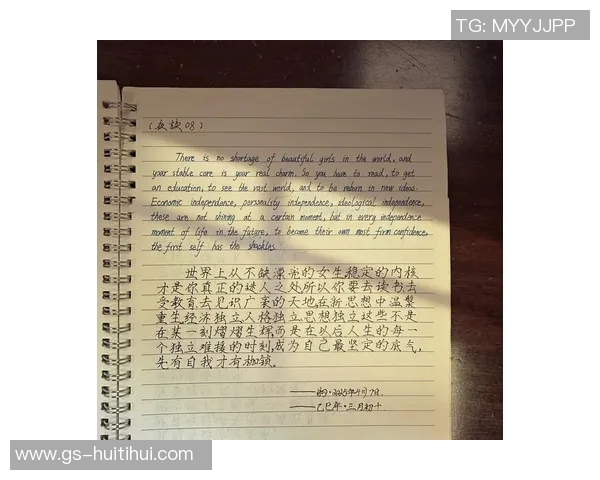 TG: MYYJJPP
(夜談08)
There is no shortage of beautiful girls in the world, and
your stable core is your real charm. So you have to read, to get
an education, to see the vast world, and to be reborn in new ideas.
Economic independence, personality independence, ideological independence,
these are not shining at a certain moment, but in every independence
moment of life in the future, to become their own most firm confidence,
the first self has the shackles.
世界上从不缺漂亮的女生,稳定的内核
才是你真正的迷人之处所以你要去读书去
受教育去见识广袤的天地,在新思想中涅槃
重生经济独立人格独立思想独立这些不是
在某一刻熠熠生辉,而是在以后人生的每一
个独立难挨的时刻,成为自己最坚定的底气,
先有自我才有枷锁。
2025年4月7日.
——乙巳年·三月初十.
www.gs-huitihui.com